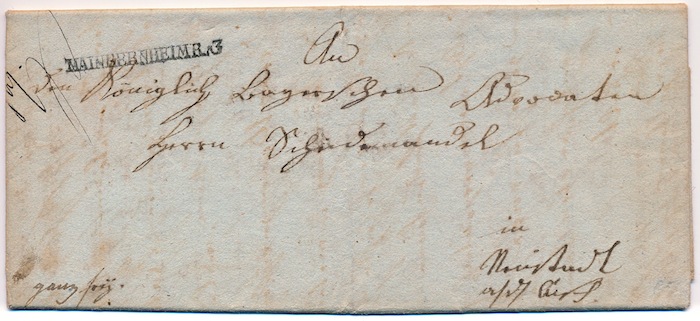 MAINBERNHEIM R. 3
An
den Königlich Bayerschen Advocaten
Herrn Scheidemandel
in
Neustadt
a/d Aisch.
ganz frey.